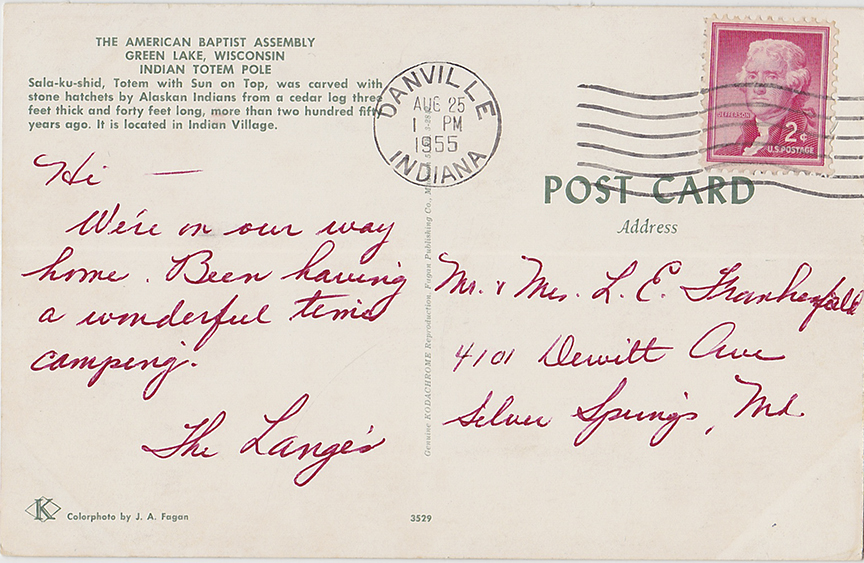 THE AMERICAN BAPTIST ASSEMBLY
GREEN LAKE, WISCONSIN
INDIAN TOTEM POLE
Sala-ku-shid, Totem with Sun on Top, was carved with
stone hatchets by Alaskan Indians from a cedar log three
feet thick and forty feet long, more than two hundred fifty
years ago. It is located in Indian Village.
Hi —
We're on our way
home. Been having
a wonderful time
camping.
The Lange's
K
Colorphoto by J. A. Fagan
3529
Genuine KODACHROME Reproduction, Fagan Publishing Co.,
DANVILLE
AUG 25
1 PM
1955
INDIANA
JEFFERSON
2¢
U.S. POSTAGE
POST CARD
Address
Mr. & Mrs. L. E. Frankenfeld
4101 Dewitt Ave
Silver Springs, Md.